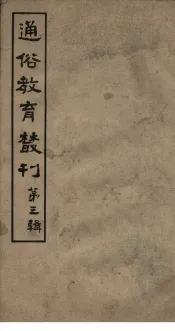 通俗教育叢刊第三輯